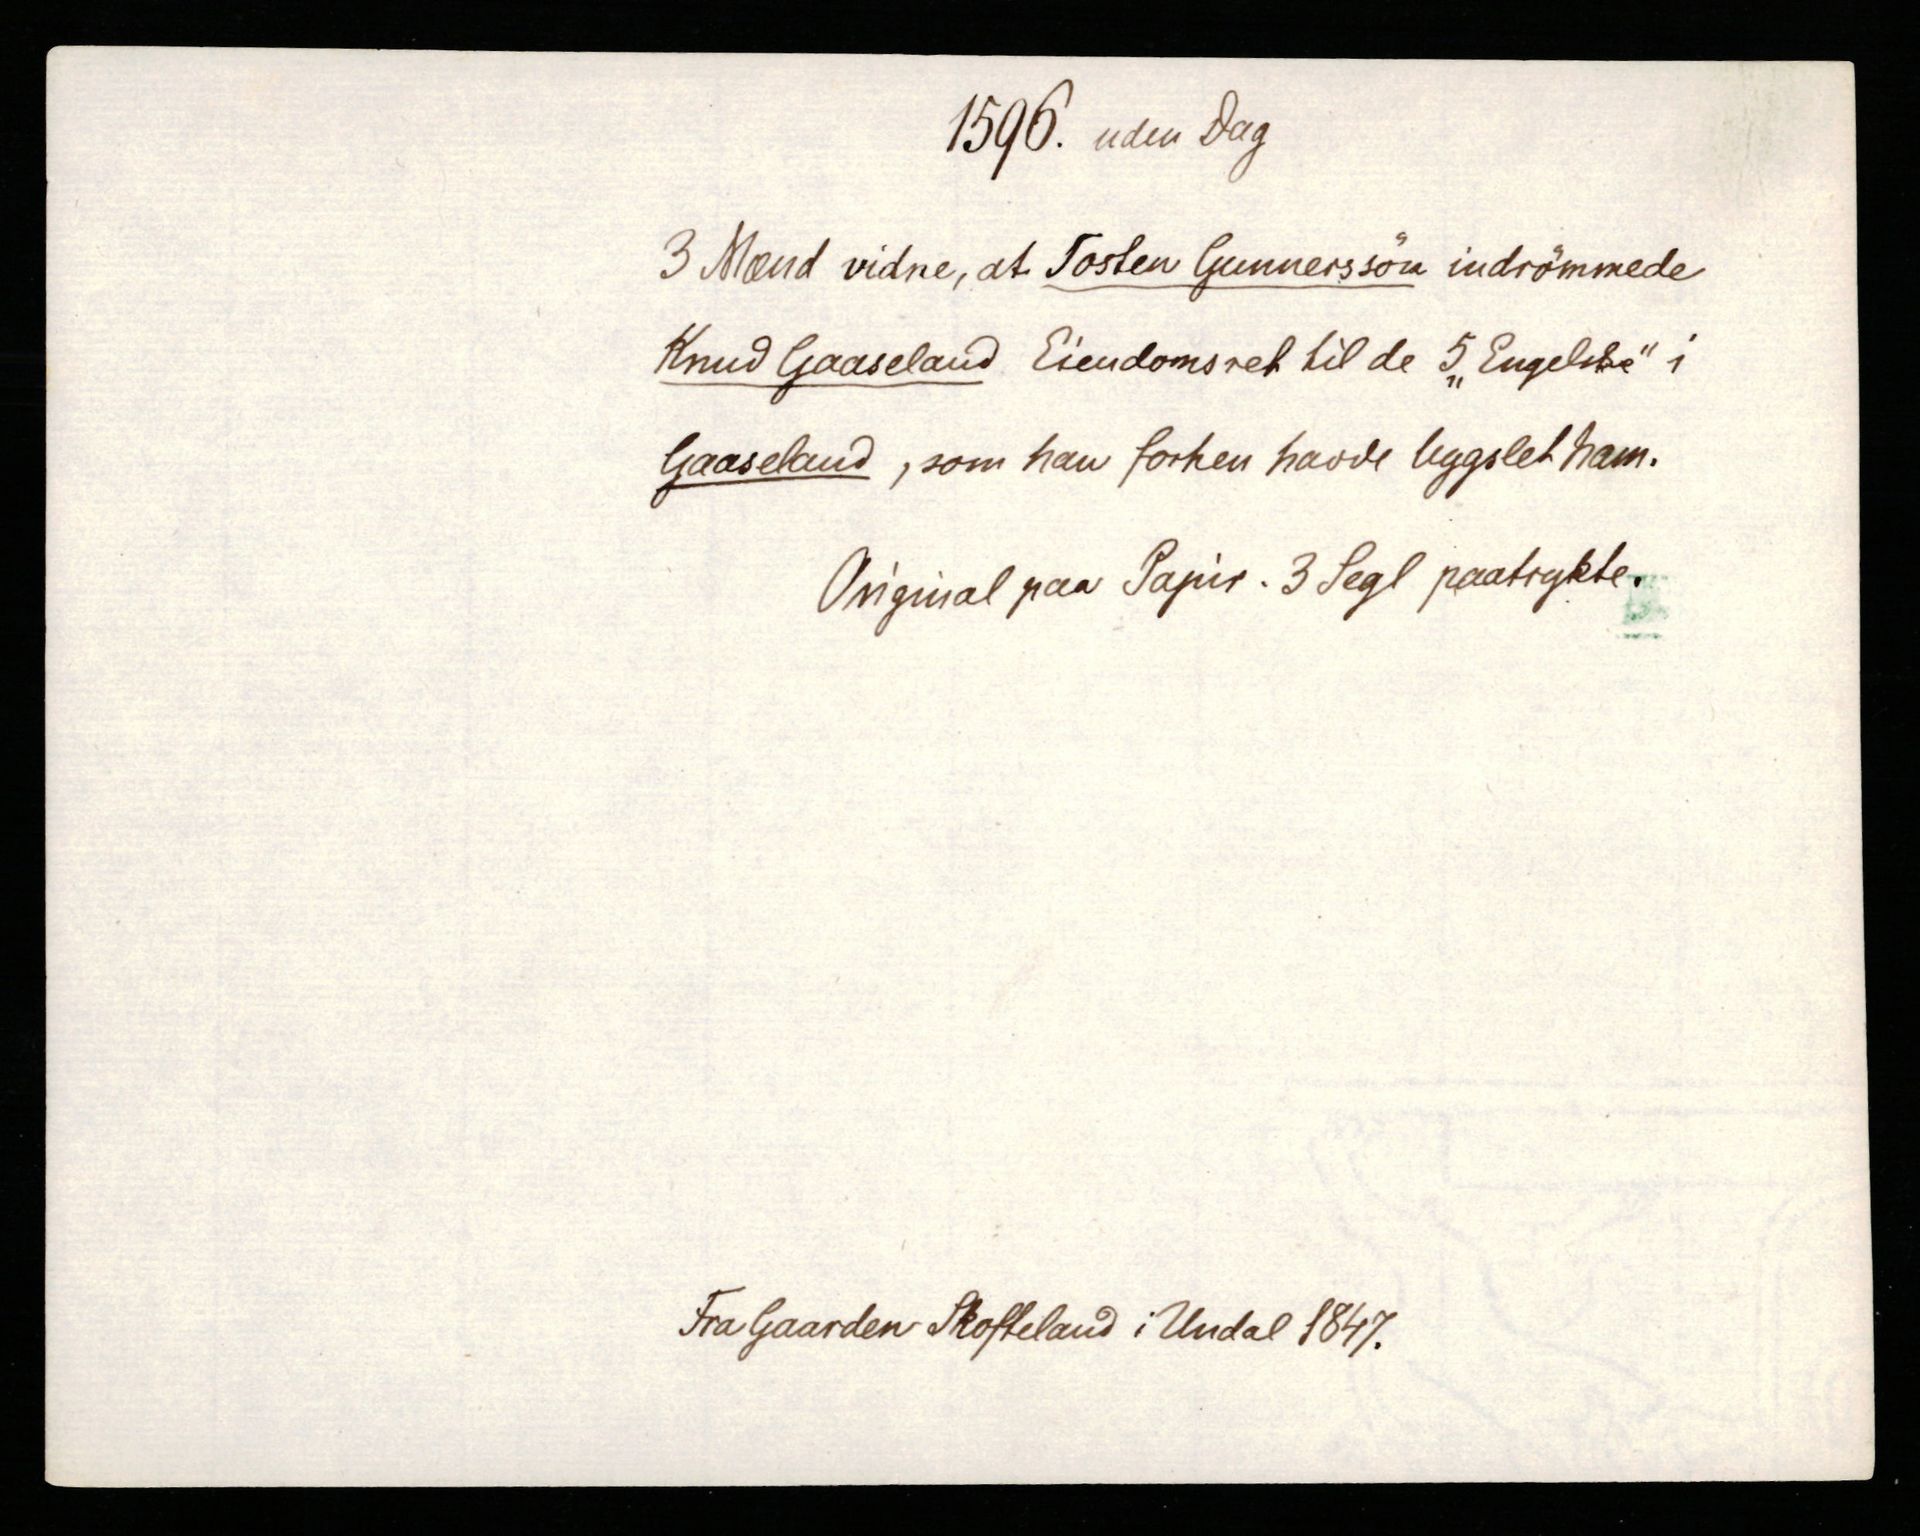 1596. uden Dag
3 Mænd vidne, at Tosten Gunnerssön indrömmede
Knud Gaaseland Eiendomsret til de 5 „Engelske“ i
Gaaseland, som han forhen havde bygslet ham.
Original paa Papir. 3 Segl paatrykte.
Fra Gaarden Skofteland i Undal 1847.